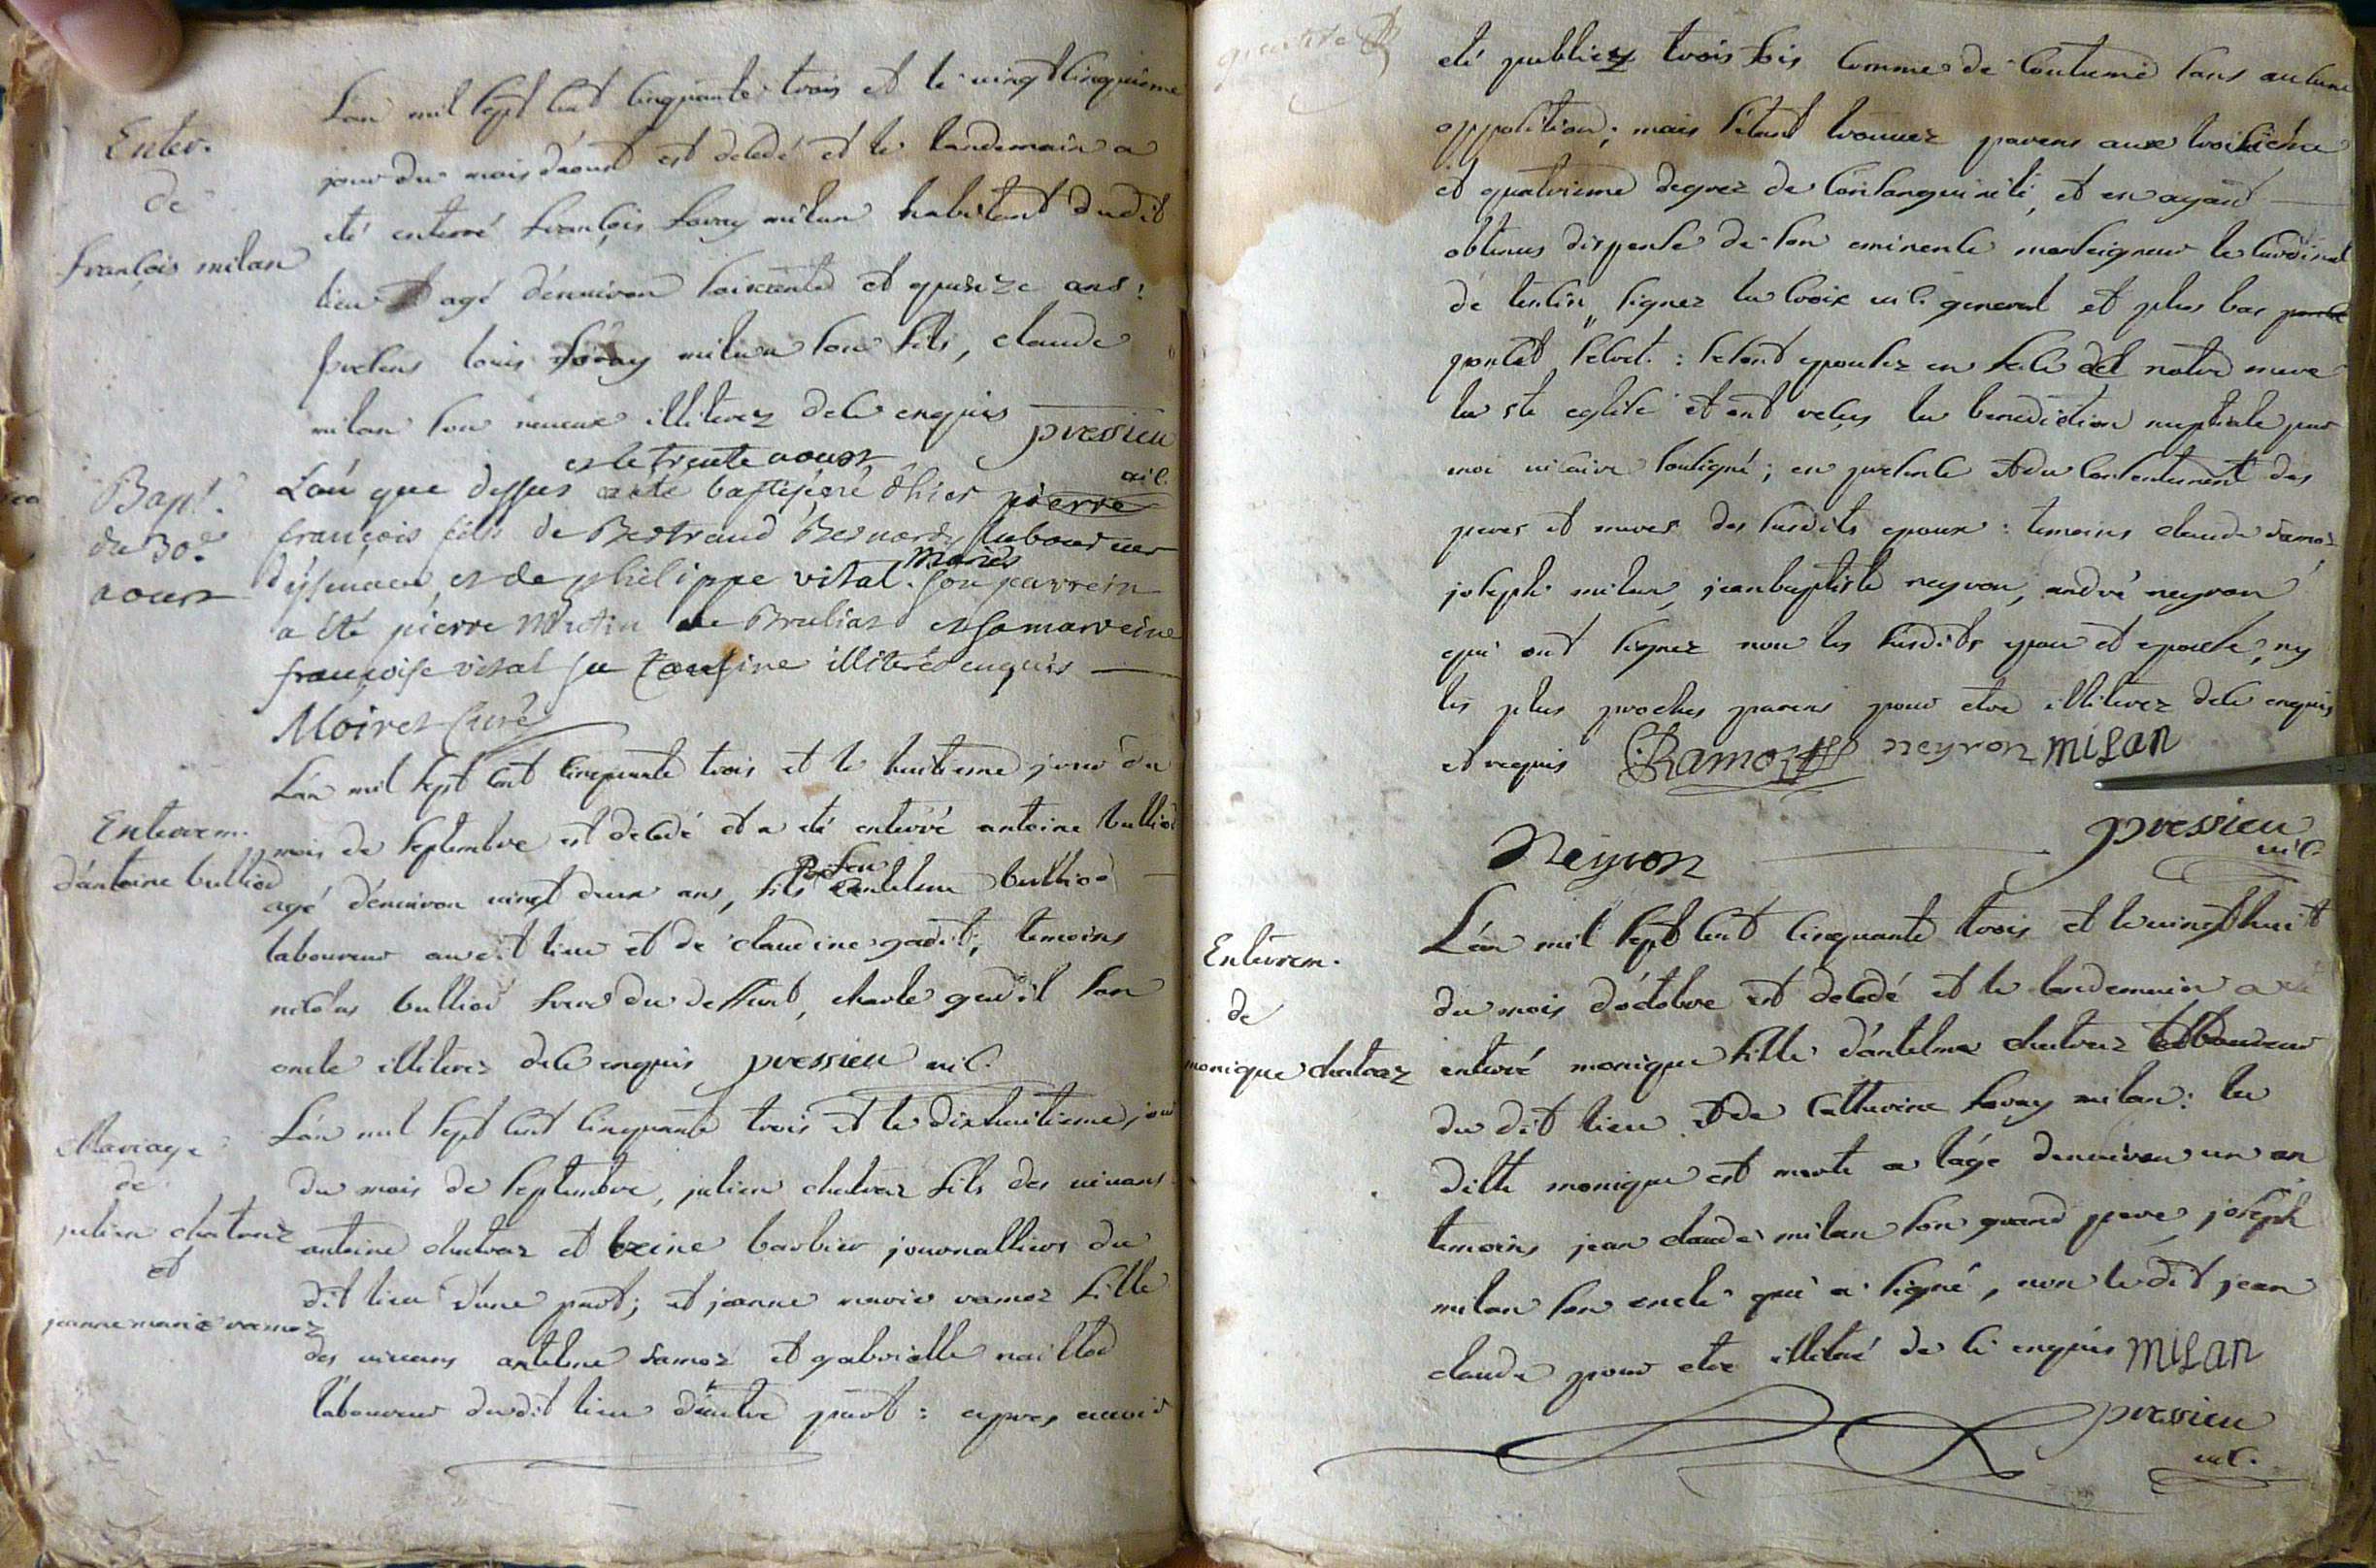 Enter.
de
françois milan
L'an mil sept cent cinquante trois et le vingt cinquieme
jour du mois d'aoust est decedé et le landemain a
eté enterré françois favay milan habitant dudit
lieu agé d'environ soixante et quinze ans:
presens louis favay milan son fils, claude
milan son neveux illiterez de ce enquis pressieu
vic.
Bapt.
du 30e
aoust
et le trente aoust
L'an que dessus a été baptisé hier pierre
françois fils de Bertrand Bernard laboureur
d'yzenave, et de philippe vital mariés son parrein
a été pierre Mutin de Brulias et sa marreine
françoise vital sa cousine illiterés enquis
Moiret Curé
Enterrem.
d'antoine bulliod
L'an mil sept cent cinquante trois et le huitieme jour du
mois de septembre est decedé et a eté enterré antoine bulliod
agé d'environ vingt deux ans, fils de feu antelme bulliod
laboureur audit lieu et de claudine gadit; temoins
nicolas bulliod frere du deffunt, charle gudil son
oncle illiterez de ce enquis pressieu vic.
Mariage
de
julien chatraz
et
jeanne marie ramoz
L'an mil sept cent cinquante trois et le dixhuitieme jour
du mois de septembre, julien chatraz fils des vivans
antoine chatraz et reine barbier journalliers du
dit lieu d'une part; et jeanne marie ramoz fille
des vivans antelme ramoz et gabrielle naillod
laboureur dudit lieu d'autre part: apres avoir
eté publiez trois fois comme de coutume sans aucune
oppolition; mais s'étant trouvez parens aux troisième
et quatrieme degrez de consanguinité, et en ayant
obtenus dispense de son eminence monseigneur le cardinal
de tencin, signez la croix vic. general et plus bas
pontet secret.: se sont epousez en face de notre mere
la ste eglise et ont reçus la benediction nuptiale par
moi vicaire soussigné; en presence et du consentement des
peres et meres des susdits epoux: temoins claude ramoz
joseph milan, jean baptiste neyron, andré neyron
qui ont signez non les susdits epou et epouse, ny
les plus proches parens pour etre illiterez de ce enquis
et requis CRamoz neyron milan
Neyron pressieu
vic.
Enterrem.
de
monique chatraz
L'an mil sept cent cinquante trois et le vingt huit
du mois d'octobre est decedé et le landemain a eté
enterré monique fille d'antelme chatraz laboureur
du dit lieu et de Catherine favay milan: la
ditte monique est morte a l'agé d'environ un an
temoins jean claude milan son grand pere, joseph
milan son oncle qui a signé, non le dit jean
claude pour etre illiteré de ce enquis milan
pressieu
vic.